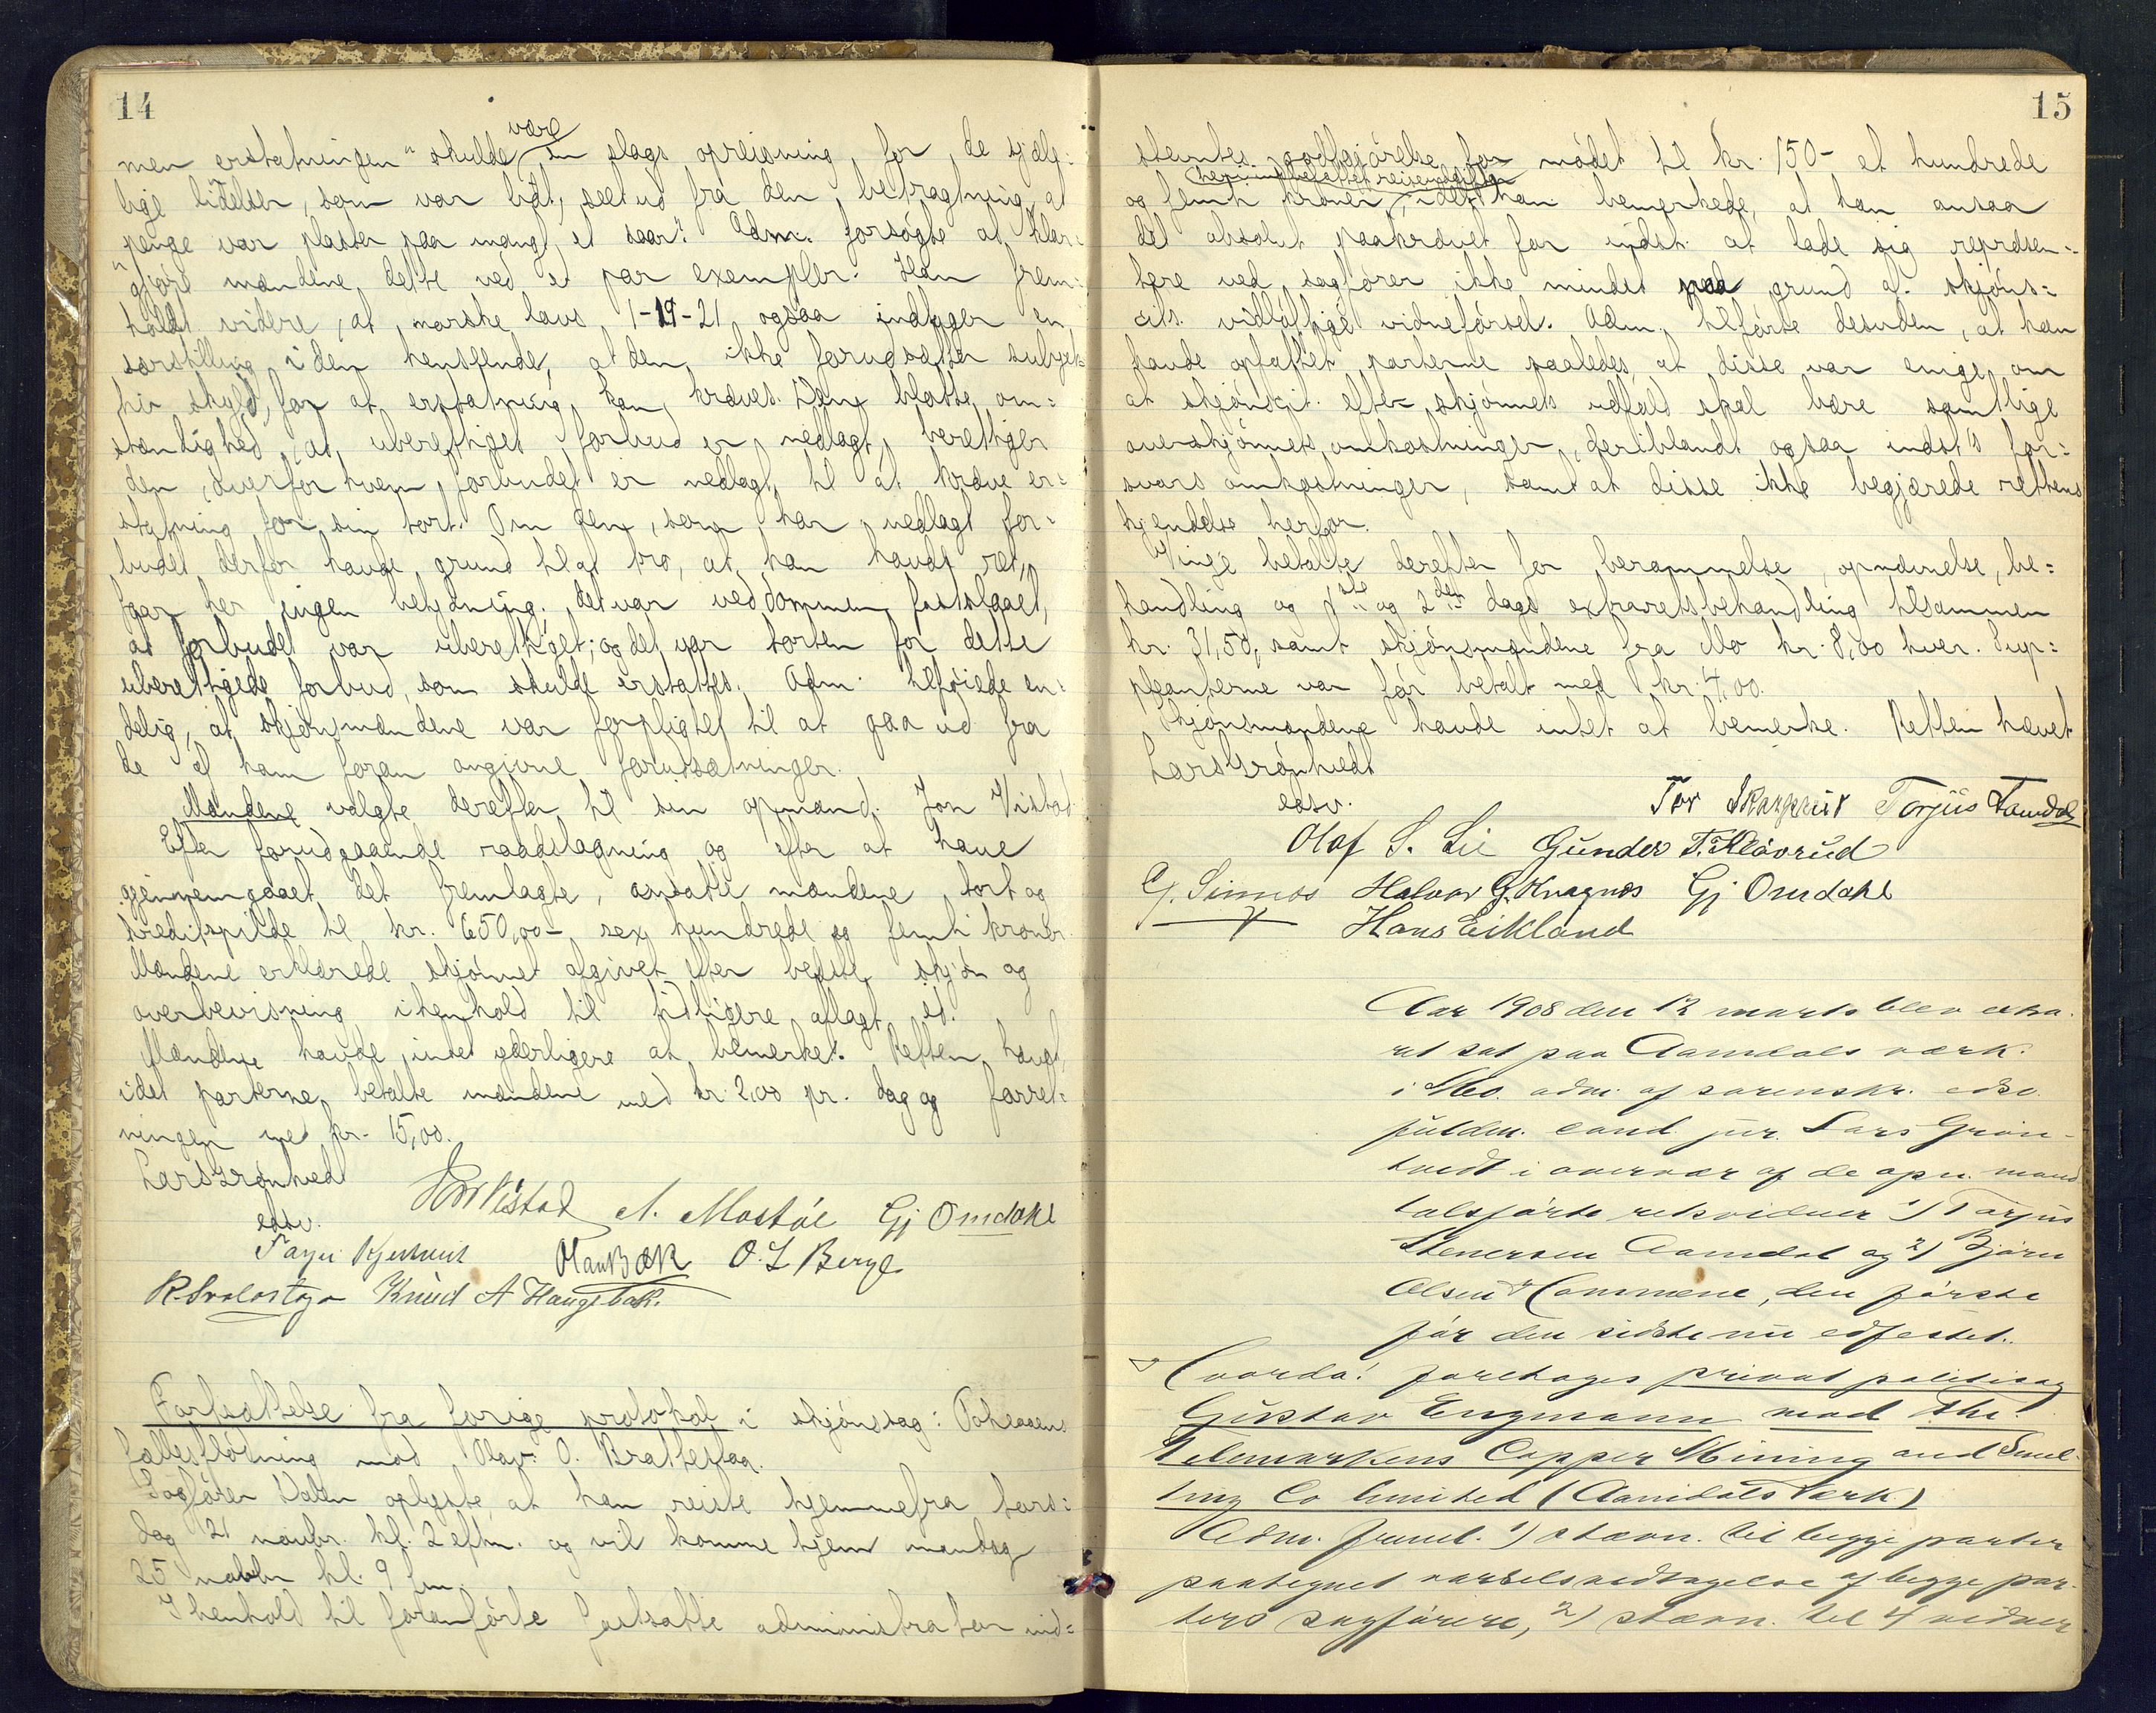 14
være
men erstatningen "skulde en slags opreisning, for, de sjæle-
lige lidelser, som var lidt, seet ud fra den betragtning, at
penge var plaster paa mangt et saar". Adm. forsøgte at klar-
gjøre mændene dette ved et par exempler. Han frem-
holdt videre, at norske lovs 1-19-21 ogsaa indtager en
særstilling i den henseende, at den ikke forudsætter subjek-
tiv skyld, for at erstatning kan kræves. Den blotte om=
stændighed, at uberettiget forbud er nedlagt, berettiger
den, overfor hvem forbudet er nedlagt, til at kræve er=
statning for sin tort. Om den, som har nedlagt for=
budet derfor havde grund til at tro, at han havde ret,
faar her ingen betydning. Det var ved dommen fastslaaet,
at forbudet var uberettiget; og det var torten for dette
uberettigede forbud, som skulde erstattes. Adm. tilføiede en=
delig, at skjønsmændene var forpligtet til at gaa ud fra
de af ham foran angivne forutsætninger.
Mændene valgte derefter til sin opmand: Jon Vistad
Efter forudgaaende raadslagning og efter at have
gjennemgaaet det fremlagte, ansatte mændene tort og
kreditspilde til kr. 650,00- sex hundrede og femti kroner.
Mændene erklærede skjønnet afgivet efter bedste skjøn og
overbevisning i henhold til tidligere aflagt ed.
Mændene havde intet yderligere at bemerke. Retten hævet,
idet parterne betalte mændene med kr. 2,00 pr. dag og forret=
ningen med kr. 15,00.
Lars Grønhvedt
edsv.
Jon Vistad A. Mostøl Gj Omdahl
Olav Bæk O. L Berge
Knud A Haugebak.
Fortsættelse fra forige protokol i skjønssag: Tokeaaens
fællesfløtning mod Olav O. Brattestaa.
Sagfører Dalen oplyste, at han reiste hjemmefra tors=
dag 21 novbr. kl. 2 eftm. og vil komme hjem mandag
25 novbr kl. 9 fm
I henhold til foranførte fastsatte administrator ind=
15
stevntes godtgjørelse for mødet til kr. 150- et hundrede
heri indbefattet reiseudgifter
og femti kroner, idet han bemerkede, at han ansaa
det absolut paakrævet for indst. at lade sig repræsen=
tere ved sagfører ikke mindst paa grund af skjøns=
cit. vidløftige vidneførsel. Adm. tilførte desuden, at han
havde opfattet parterne saaledes, at disse var enige om
at skjønscit. efter skjønnets udfald skal bære samtlige
overskjønnets omkostninger, deriblandt ogsaa indst's for=
svars omkostninger, samt at disse ikke begjærede rettens
kjendelse herfor.
Vinje betalte derefter for berammelse, opnævnelse, be=
handling og 1ste og 2den dags extraretsbehandling tilsammen
kr. 31,50, samt skjønsmændene fra Mo kr. 8,00 hver. Sup=
pleanterne var før betalt med kr. 4,00.
Skjønsmændene havde intet at bemerke. Retten hævet
Lars Grønhvedt
edsv.
Tor Skarprud Torjus Lamdal
Olaf S. Lie Gunder T. Kleivrud
G. Sinnes Halvor G. Kragnes Gj Omdahl
Hans Eikland
Aar 1908 den 12 marts blev extra-
ret sat paa Aamdals værk
i Mo. adm. af sorenskr. edsv.
fuldm. cand. jur. Lars Grøn-
hvedt i overvær af de opn. mand
talsførte retsvidner 1) Torjus
Stenersen Aamdal og 2) Bjørn
Olsen Commene, den første
før den sidste nu edfæstet.
Hvorda! foretages privat politisag
Gustav Engmann mod The
Telemarkens Copper Mining and Smel-
ting Co limited (Aamdals Værk)
Adm. freml. 1) stævn. til begge parter
paategnet varselsvedtagelse af begge par-
ters sagførere, 2) stævn. til 4 vidner